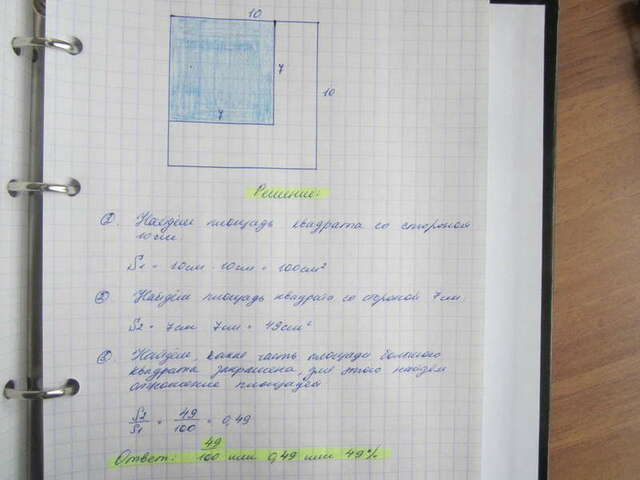 10
7
10
7
Решение:
1. Найдём площадь квадрата со стороной
10 см.
S1 = 10см · 10см = 100см²
2. Найдём площадь квадрата со стороной 7 см.
S2 = 7см · 7см = 49см²
3. Найдём, какая часть площади большого
квадрата закрашена, для этого найдём
отношение площадей
S2/S1 = 49/100 = 0,49
Ответ: 49/100 или 0,49 или 49%